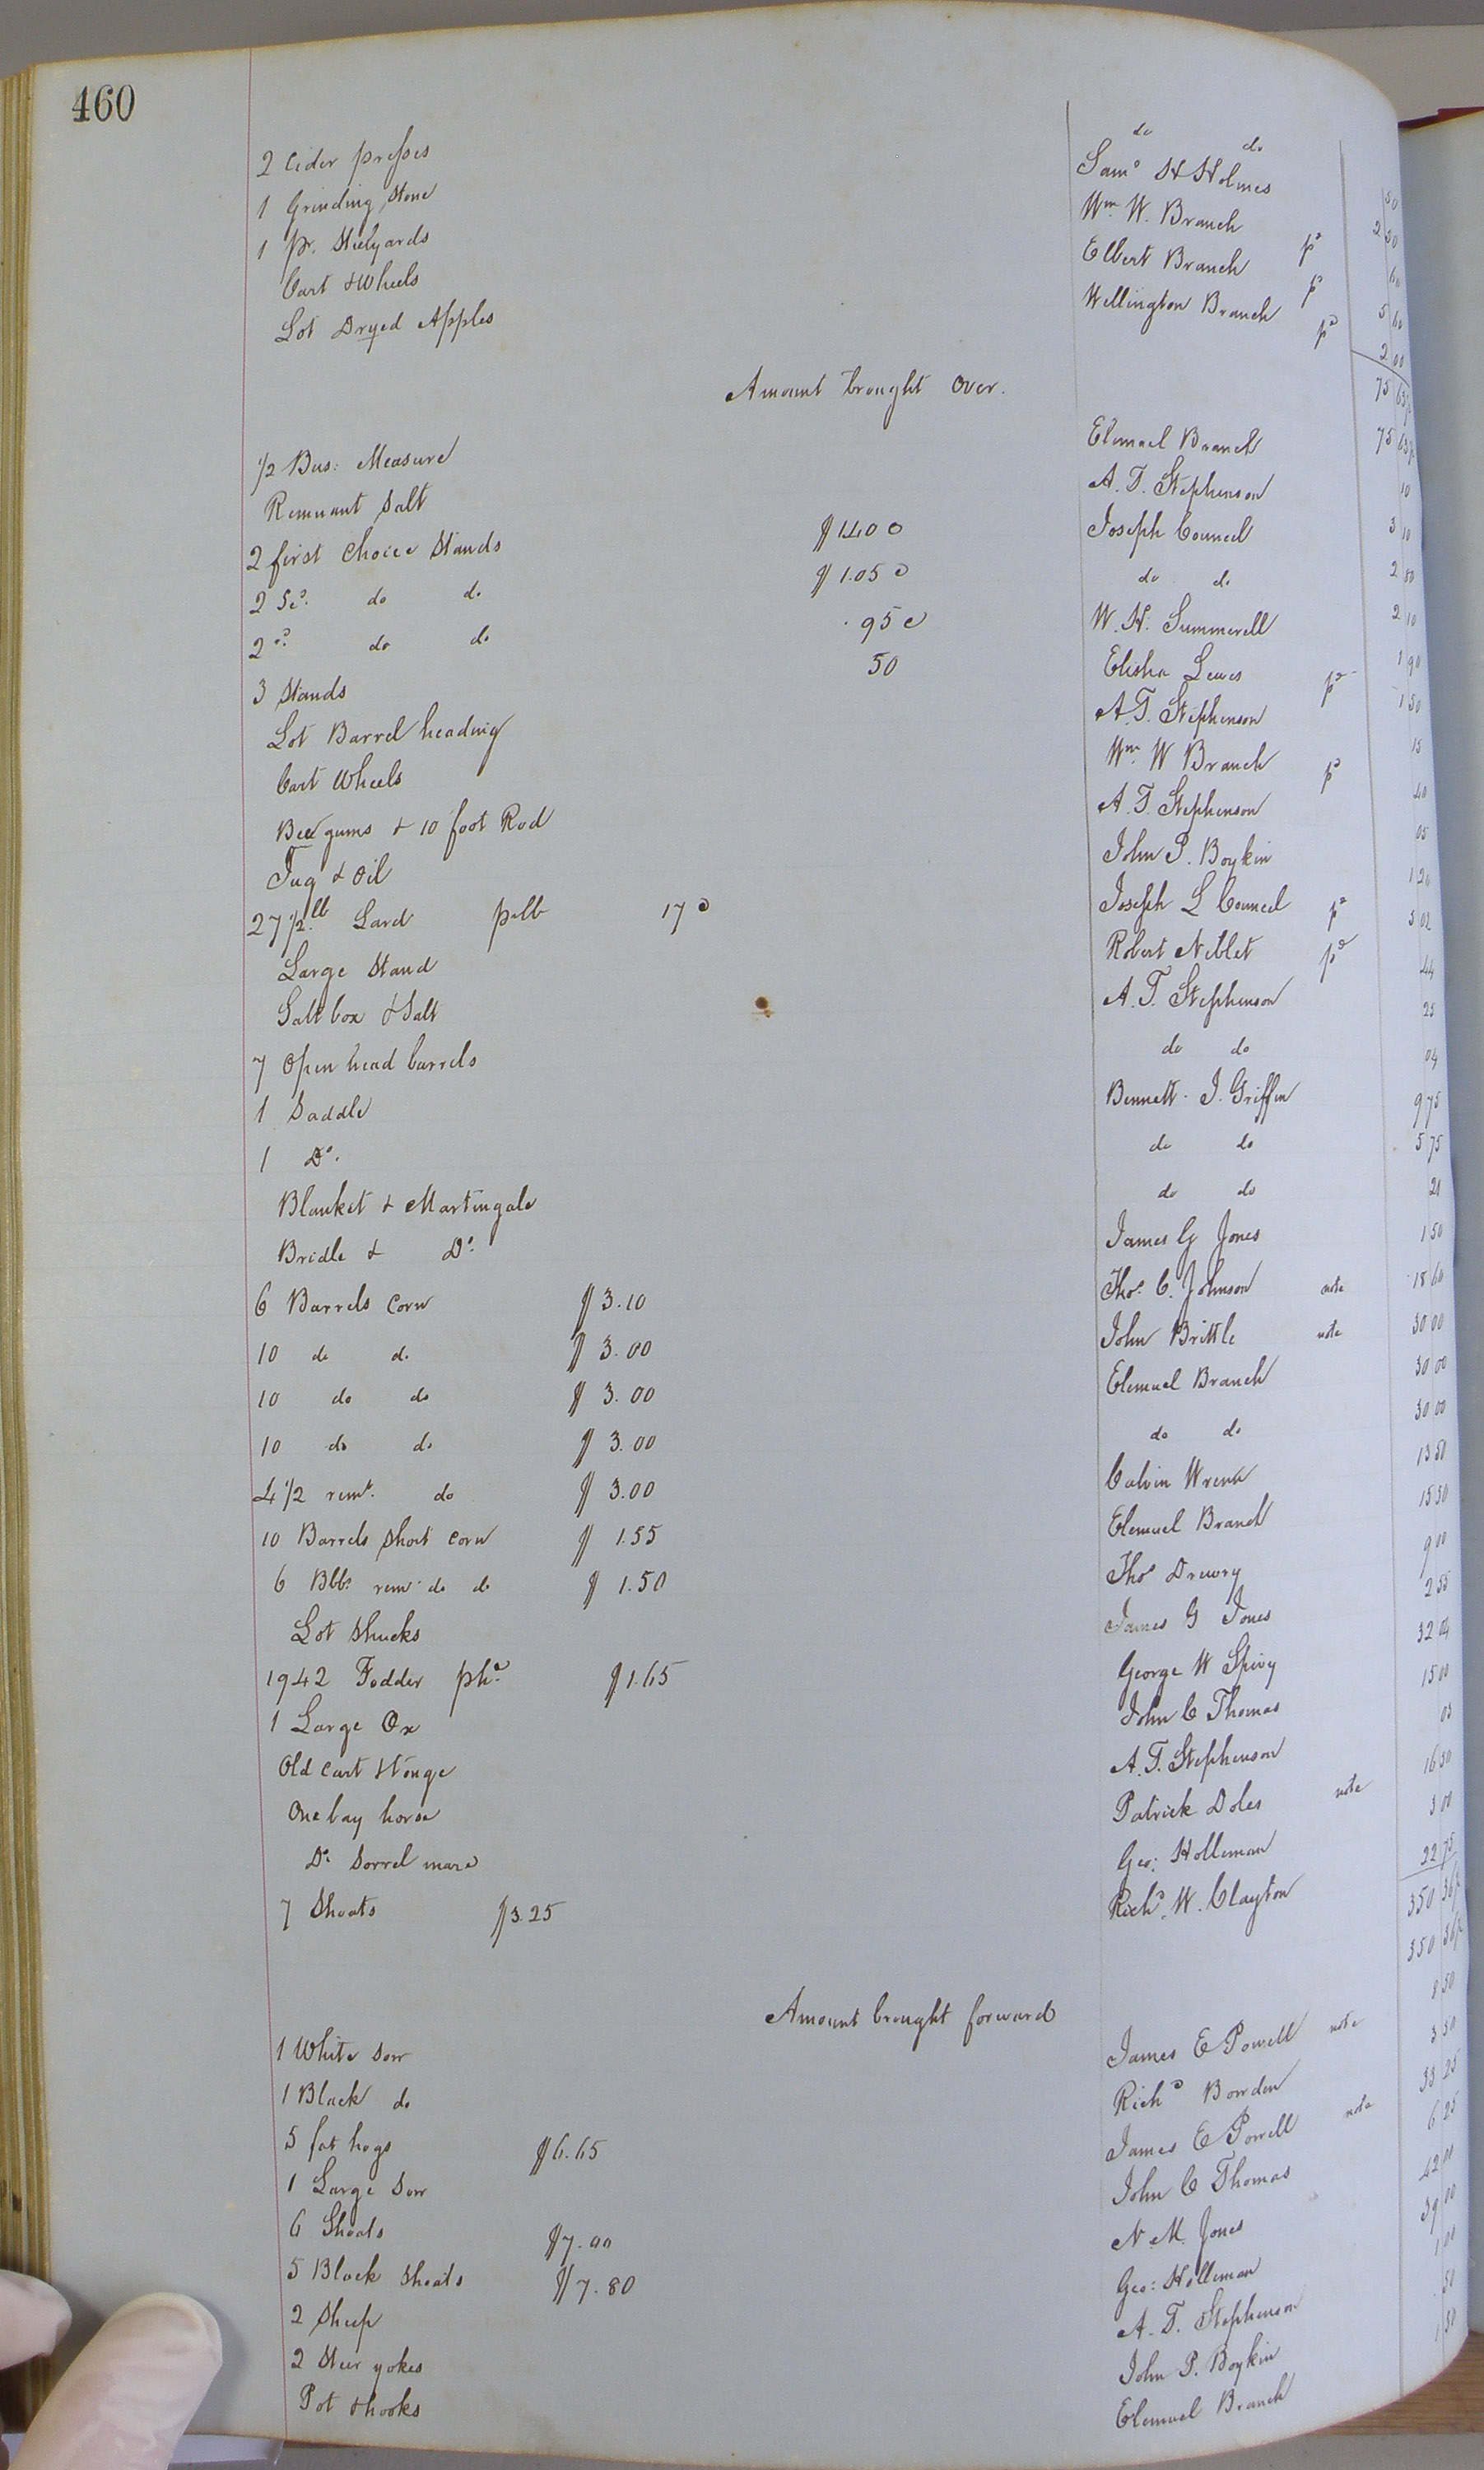 460
2 Cider presses do do 50
1 Grinding Stone Sam.l H Holmes 2 50
1 pr. Steelyards Wm. W. Branch pd 60
Cart & Wheels Elbert Branch pd 5 60
Lot Dryed Apples Wellington Branch pd 2 00
75 63½
Amount brought Over. 75 63½
½ Bus: Measure Elemuel Branch 10
Remnant Salt A. T. Stephenson 3 10
2 first Choice Stands $1.40 c Joseph Councel 2 80
2 Sec. do do $1.05 c do do 2 10
2 do do .95 c W. H. Summerell 1 90
3 Stands 50 Elisha Lewes pd 1 50
Lot Barrel heading A. T. Stephenson 15
Cart Wheels Wm. W Branch pd 40
Bee gums & 10 foot Rod A. T. Stephenson 05
Jug & Oil John P. Boykin 1 20
27½ lb Lard pr lb 17 c Joseph L Councel pd
Large Stand Robert Neblet pd 44
Salt box & Salt A. T. Stephenson 25
7 Open head barrels do do 04
1 Saddle Bennett J. Griffin 9 75
1 Do. do do 5 75
Blanket & Martingale do do
Bridle & Do. James G Jones 1 50
6 Barrels Corn $3.10 Thos. C. Johnson note 18 60
10 do do $3.00 John Brittle note 30 00
10 do do $3.00 Elemuel Branch 30 00
10 do do $3.00 do do 30 00
4½ remt. do $3.00 Calvin Wrenn 13 50
10 Barrels Short Corn $1.55 Elemuel Branch 15 50
6 Bbls remt do do $1.50 Thos Drewry 9 00
Lot Shucks James G Jones 2 55
1942 Fodder phd. $1.65 George W Spivy 32 04
1 Large Ox John C Thomas 15 00
Old Cart & tonge A. T. Stephenson 05
One bay horse Patrick Doles note 16 50
Do. Sorrel mare Geo: Holleman 3 00
7 Shoats $3.25 Richd. W. Clayton 22 75
350 36½
Amount brought forward 350 36½
1 White Sow James E Powell note 8 50
1 Black do Richd Bowden 3 50
5 fat hogs $6.65 James E Powell note 33 25
1 Large Sow John C Thomas 6 25
6 Shoats $7.00 N. M. Jones 42 00
5 Black Shoats $7.80 Geo: Holleman 39 00
2 Sheep A. T. Stephenson 1 00
2 Steer yokes John P. Boykin 50
Pot & hooks Elemuel Branch 1 50